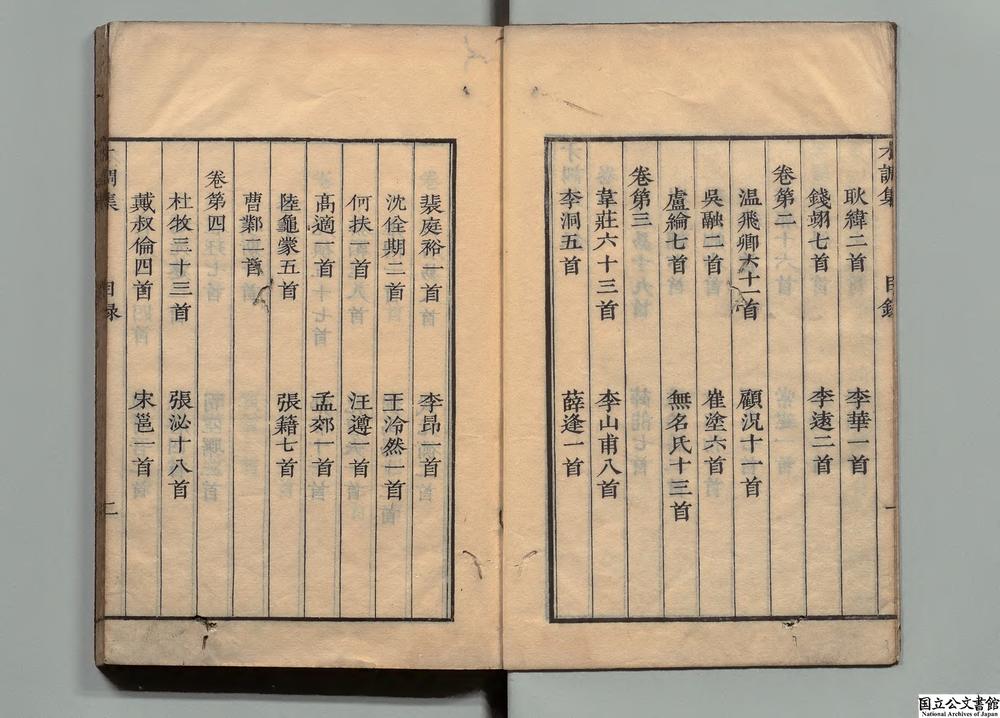 才調集 目錄 一
耿緯二首 李華一首
錢翊七首 李遠二首
卷第二
温飛卿六十一首 顧況十一首
吳融二首 崔塗六首
盧綸七首 無名氏十三首
卷第三
韋莊六十三首 李山甫八首
李洞五首 薛逢一首
裴庭裕一首 李昂一首
沈佺期二首 王泠然一首
何扶一首 汪遵一首
高適一首 孟郊一首
陸龜蒙五首 張籍七首
曹鄴二首
卷第四
杜牧三十三首 張泌十八首
戴叔倫四首 宋邕二首
才調集 目録 二
国立公文書館
National Archives of Japan